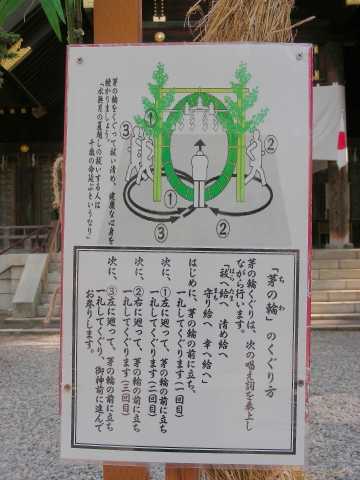 茅の輪をくぐって祓い清め、健康な心身を
授かりましょう。
「水無月の夏越しの祓いする人は
千歳の命延ぶというなり」
③
①
②
①
③
②
「茅の輪」のくぐり方
ち
わ
茅の輪くぐりは、次の唱え詞を奏上し
ながら行います。
「祓へ給へ 清め給へ
守り給へ 幸へ給へ」
はじめに、茅の輪の前に立ち、
一礼してくぐります(一回目)
次に、①左に廻って、茅の輪の前に立ち
一礼してくぐります(二回目)
次に、②右に廻って、茅の輪の前に立ち
一礼してくぐります(三回目)
次に、③左に廻って、茅の輪の前に立ち
一礼してくぐり、御神前に進んで
お参りします。